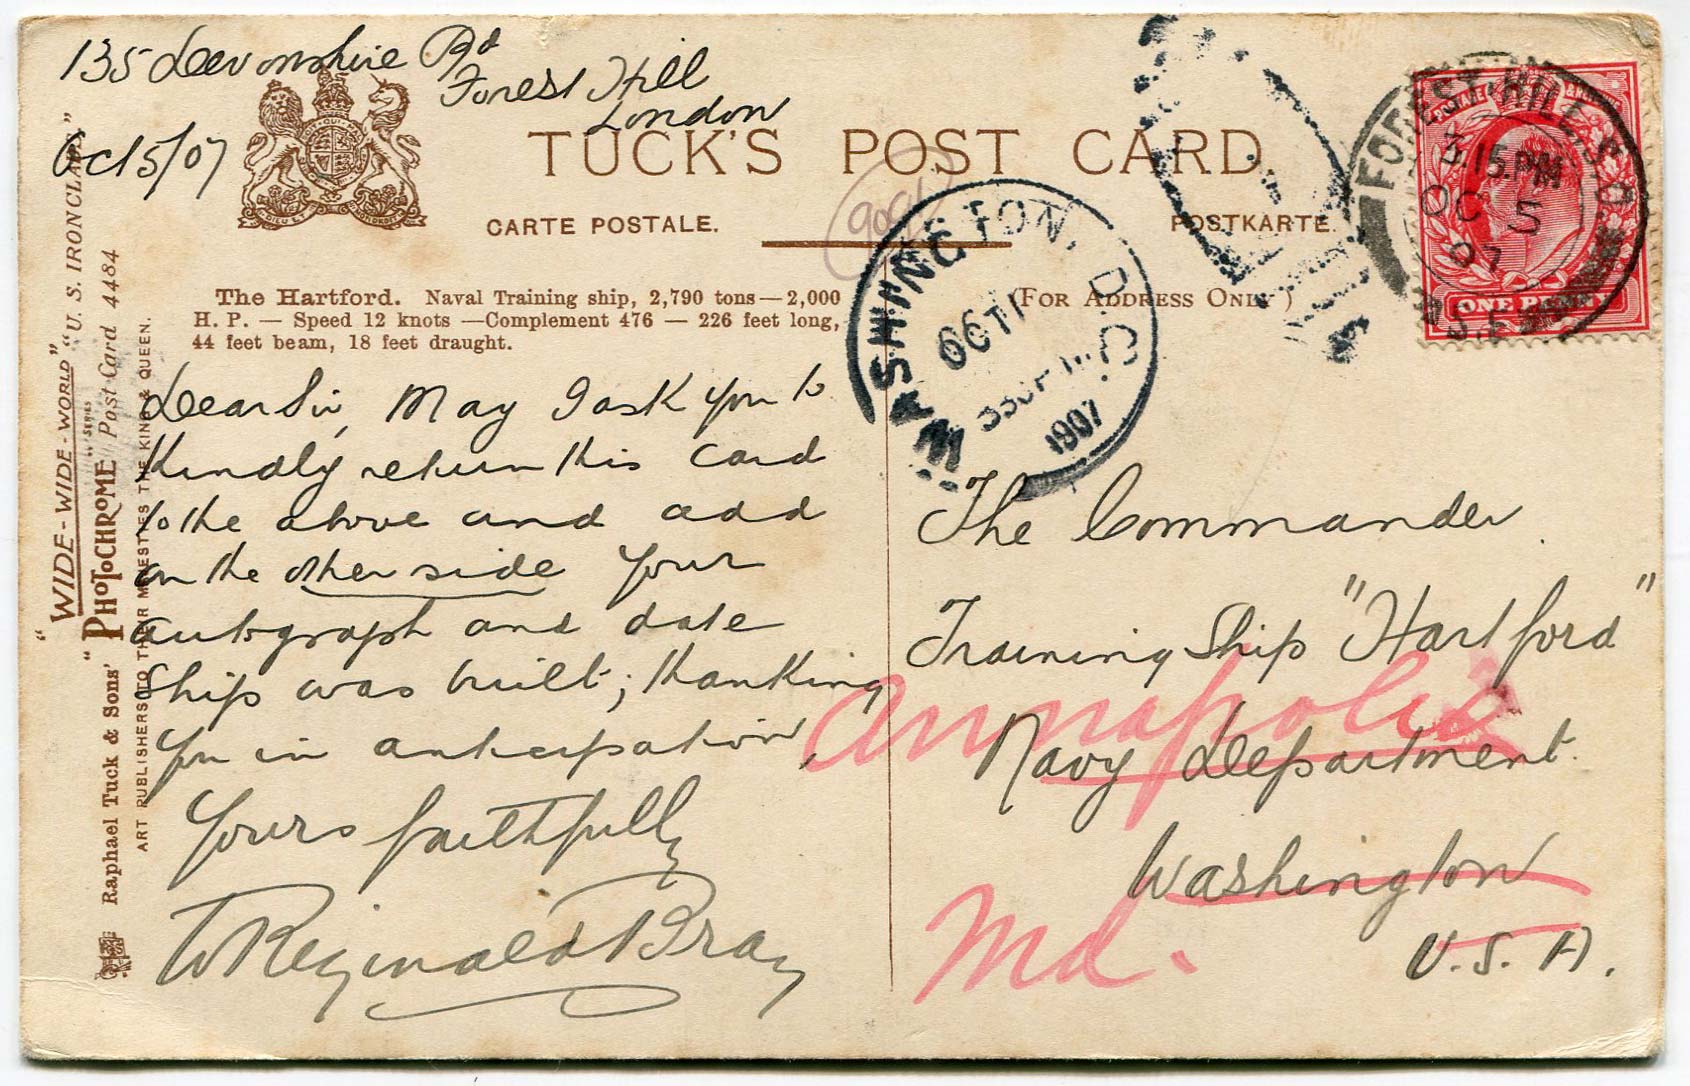 135 Devonshire Rd
Forest Hill
London
Oct 5/07
TUCK'S POST CARD
CARTE POSTALE. POSTKARTE.
The Hartford. Naval Training ship, 2,790 tons—2,000
H. P. — Speed 12 knots —Complement 476 — 226 feet long,
44 feet beam, 18 feet draught.
(FOR ADDRESS ONLY)
Dear Sir, May I ask you to
kindly return this card
to the above and add
on the other side your
autograph and date
ship was built; thanking
you in anticipation,
Yours faithfully
W Reginald Bray
The Commander
Training Ship "Hartford"
Navy Department.
Washington
U.S.A.
Annapolis
Md.
WASHINGTON, D.C.
OCT 11
1907
FOREST HILL S.O.
3.15 PM
OC 5
07
S.E.
ONE PENNY
"WIDE-WIDE-WORLD" "U. S. IRONCLADS"
SERIES
Raphael Tuck & Sons' "PHOTOCHROME" Post Card 4484
ART PUBLISHERS TO THEIR MAJESTIES THE KING & QUEEN.